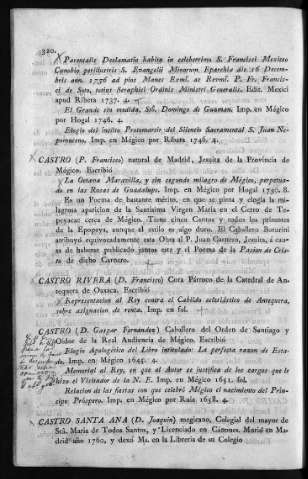 320.
Parentalis Declamatio habita in celeberrimo S. Francisci Mexicco
Cœnobio perillustris S. Evangelii Minorum Eparchia die 16 Decem-
bris ann. 1736 ad pios Manes Reml. ac Revml. P. Fr. Francis-
ci de Soto, totius Seraphici Ordinis Ministri Generalis. Edit. Mexici
apud Ribera 1737. 4.
El Grande sin medida, Sto. Domingo de Guzman. Imp. en México
por Hogal 1746. 4.
Elogio del inclito Protomartir del Silencio Sacramental S. Juan Ne-
pomuceno. Imp. en México por Ribera 1746. 4.
CASTRO (P. Francisco) natural de Madrid, Jesuita de la Provincia de
México. Escribió
La Octava Maravilla, y sin segundo milagro de México, perpetua-
do en las Rosas de Guadalupe. Imp. en México por Hogal 1730. 8.
Es un Poema de bastante mérito, en que se pinta y elogia la mi-
lagrosa aparicion de la Santísima Virgen Maria en el Cerro de Te-
peyacac cerca de México. Tiene cinco Cantos y todos los primores
de la Epopeya, aunque el estilo es algo duro. El Caballero Boturini
atribuyó equivocadamente esta Obra al P. Juan Carnero, Jesuita, á cau-
sa de haberse publicado juntos este y el Poema de la Pasion de Cris-
to de dicho Carnero.
CASTRO RIVERA (D. Francisco) Cura Párroco de la Catedral de An-
tequera de Oaxaca. Escribió
Representacion al Rey contra el Cabildo eclesiástico de Antequera,
sobre asignacion de renta. Imp. en fol.
CASTRO (D. Gaspar Fernandez) Caballero del Orden de Santiago y
Oidor de la Real Audiencia de México. Escribió
Elogio Apologético del Libro intitulado: La perfecta razon de Esta-
do. Imp. en México 1646. 4.
Memorial al Rey, en que el Autor se justifica de los cargos que le
hizo el Visitador de la N. E. Imp. en México 1651. fol.
Relacion de las fiestas con que celebró México el nacimiento del Prín-
cipe Próspero. Imp. en México por Ruiz 1658. 4.
CASTRO SANTA ANA (D. Joaquin) megicano, Colegial del mayor de
Sta. Maria de Todos Santos, y Licenciado en Cánones. Murió en Ma-
drid año 1760, y dexó Ms. en la Librería de su Colegio